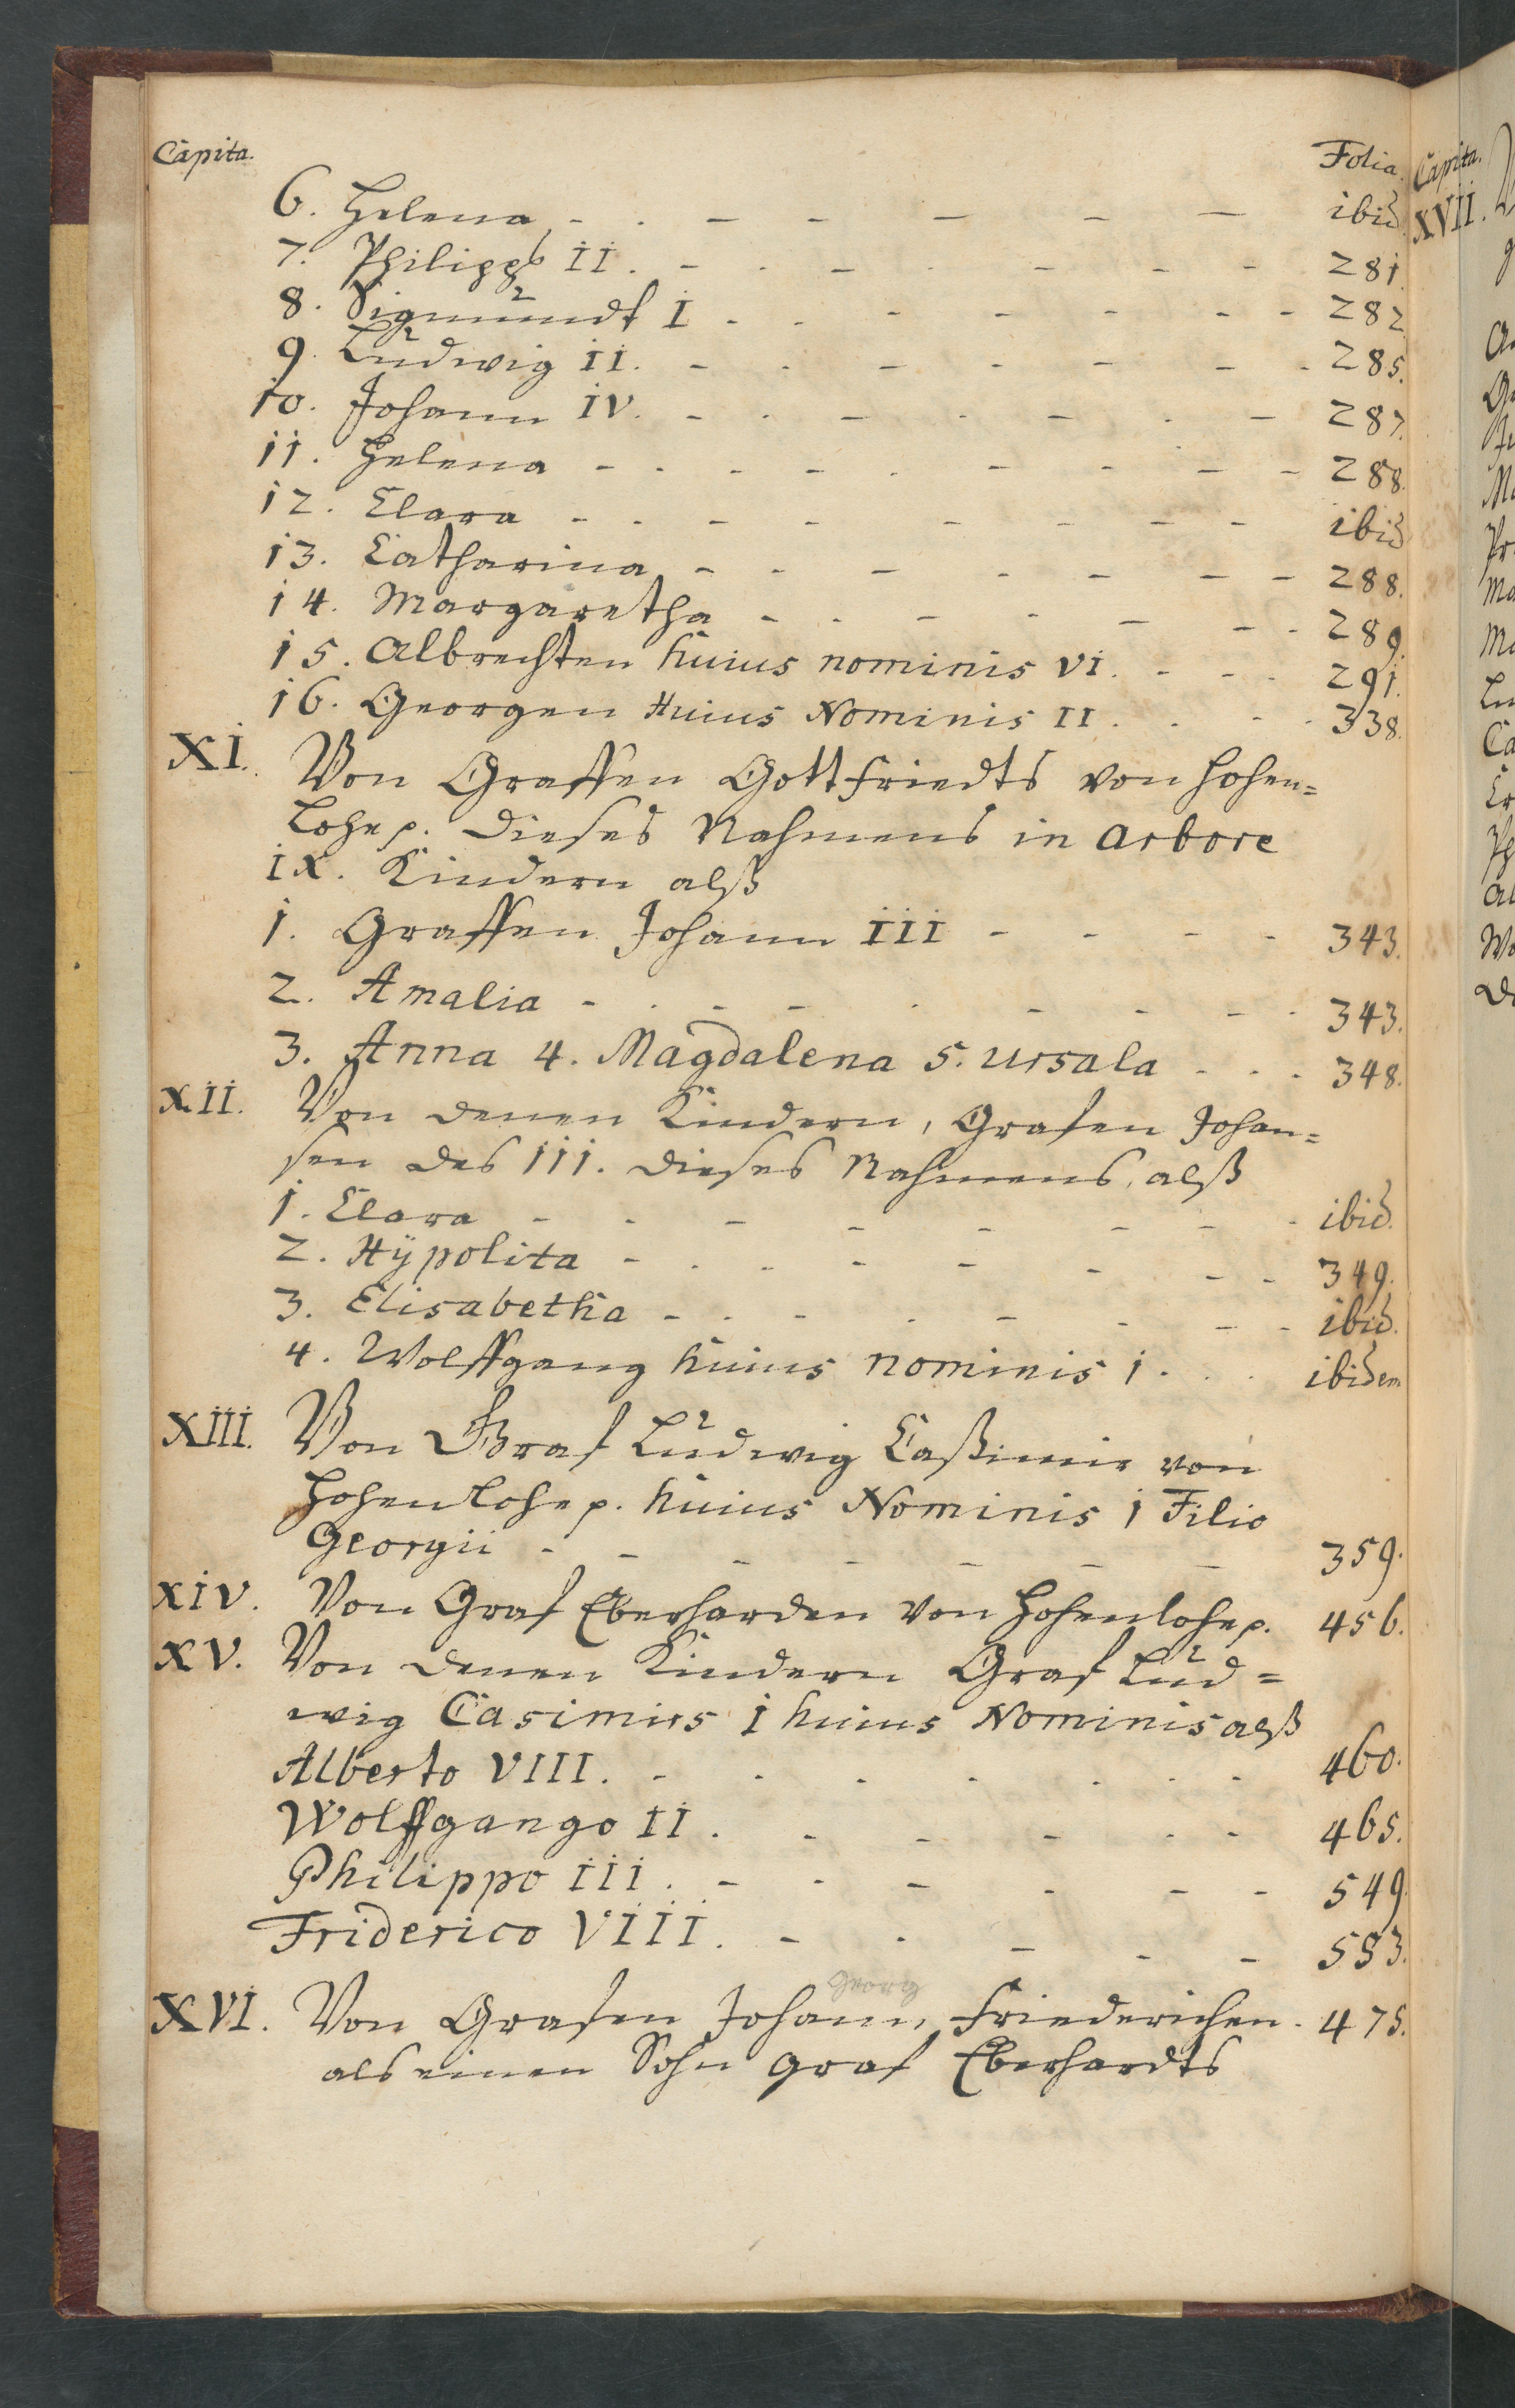 Capita. Folia.
6. Helena - - - - - ibid.
7. Philipps II. - - - - - 281.
8. Sigmundt I - - - - - 282
9. Ludwig II. - - - - - 285.
10. Johann IV. - - - - - 287.
11. Helena - - - - - 288.
12. Clara - - - - - ibid
13. Catharina - - - - - 288.
14. Margaretha - - - - - 289.
15. Albrechten huius nominis VI. - - - 291.
16. Georgen Huius Nominis II. - - 338.
XI. Von Graffen Gottfriedts von Hohen=
Lohe p. dieses Nahmens in arbore
IX. Kindern alß
1. Graffen Johann III - - - - 343.
2. Amalia - - - - - 343.
3. Anna 4. Magdalena 5. Ursala - - - 348.
XII. Von denen Kindern, Grafen Johan=
sen des III. dieses Nahmens, alß
1. Clara - - - - - ibid.
2. Hÿpolita - - - - - 349.
3. Elisabetha - - - - - ibid.
4. Wolffgang huius nominis i. - - ibidem
XIII. Von Graf Ludwig Caßimir von
Hohenlohe p. huius Nominis i Filio
Georgii - - - - - 359.
XIV. Von Graf Eberharden von Hohenlohe p. 456.
XV. Von denen Kindern Graf Lud=
wig Casimirs i huius Nominis alß
Alberto VIII. - - - - - 460.
Wolffgango II. - - - - - 465.
Philippo III. - - - - - 549.
Friderico VIII. - - - - - 553.
Georg
XVI. Von Grafen Johann, Friederichen. 475.
als einen Sohn Graf Eberhardts
Capita.
XVII.